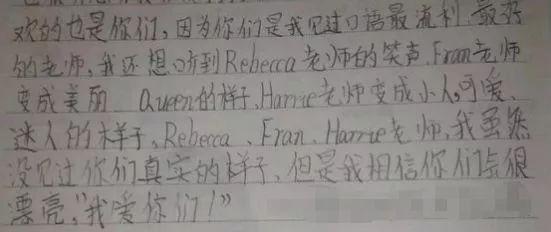 欢的也是你们，因为你们是我见过口语最流利、最好
的老师，我还想听到Rebecca老师的笑声、Fran老师
变成美丽 Queen的样子、Harrie老师变成小人，可爱、
迷人的样子，Rebecca、Fran、Harrie老师，我虽然
没见过你们真实的样子，但是我相信你们会很
漂亮，"我爱你们！"